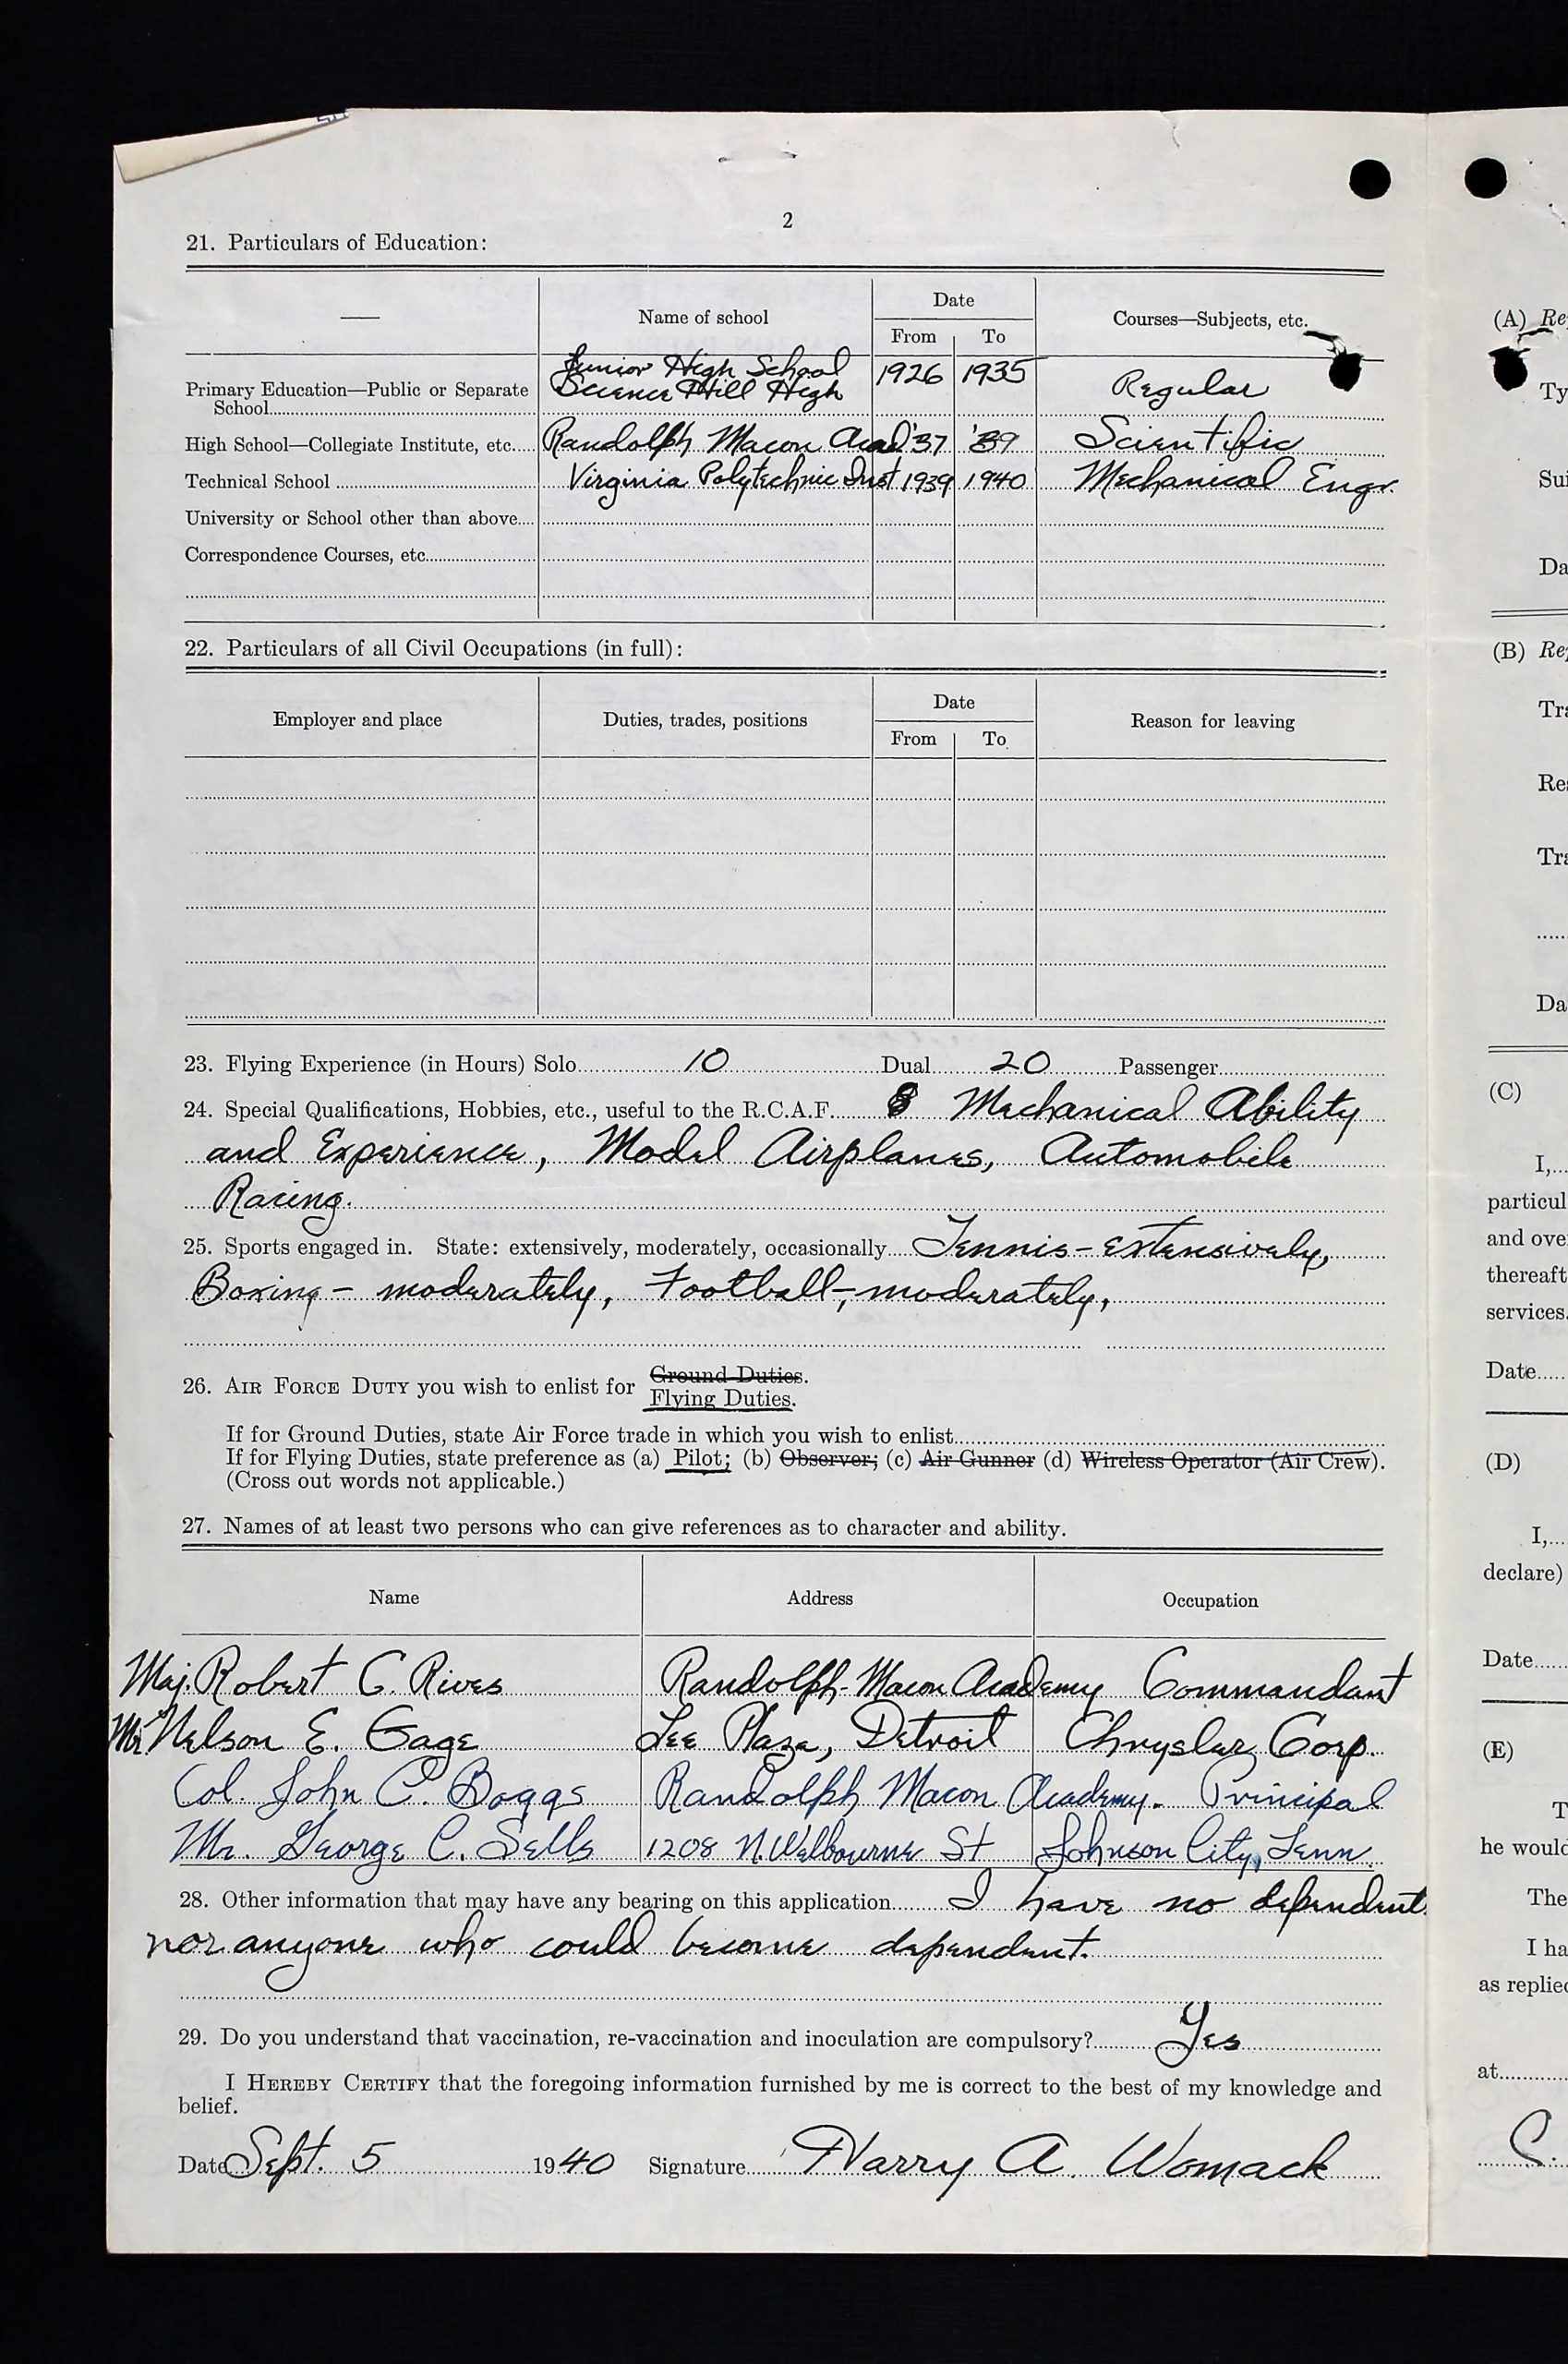 2
21. Particulars of Education:
—
Name of school
Date
Courses—Subjects, etc.
From
To
Junior High School
Primary Education—Public or Separate Science Hill High 1926 1935 Regular
School
High School—Collegiate Institute, etc. Randolph Macon Acad '37 '39 Scientific
Technical School Virginia Polytechnic Inst 1939 1940 Mechanical Engr.
University or School other than above
Correspondence Courses, etc.
22. Particulars of all Civil Occupations (in full):
Employer and place
Duties, trades, positions
Date
From
To
Reason for leaving
23. Flying Experience (in Hours) Solo 10 Dual 20 Passenger
24. Special Qualifications, Hobbies, etc., useful to the R.C.A.F. Mechanical Ability
and Experience, Model Airplanes, Automobile
Racing.
25. Sports engaged in. State: extensively, moderately, occasionally Tennis - extensively,
Boxing - moderately, Football -, moderately,
Ground Duties.
26. AIR FORCE DUTY you wish to enlist for
Flying Duties.
If for Ground Duties, state Air Force trade in which you wish to enlist
If for Flying Duties, state preference as (a) Pilot; (b) Observer; (c) Air Gunner (d) Wireless Operator (Air Crew).
(Cross out words not applicable.)
27. Names of at least two persons who can give references as to character and ability.
Name
Address
Occupation
Maj. Robert C. Rives Randolph-Macon Academy Commandant
Mr. Nelson E. Gage Lee Plaza, Detroit Chrysler Corp.
Col. John C. Boggs Randolph Macon Academy. Principal
Mr. George C. Sells 1208 N. Welbourne St Johnson City, Tenn.
28. Other information that may have any bearing on this application I have no dependent
nor anyone who could become dependent.
29. Do you understand that vaccination, re-vaccination and inoculation are compulsory? Yes
I HEREBY CERTIFY that the foregoing information furnished by me is correct to the best of my knowledge and
belief.
Date Sept. 5 1940 Signature Harry A. Womack
(A) Re
Ty
Sui
Da
(B) Re
Tra
Re
Tra
Da
(C)
I,
particul
and ove
thereaft
services.
Date
(D)
I,
declare)
Date
(E)
T
he would
The
I ha
as replied
at
C.